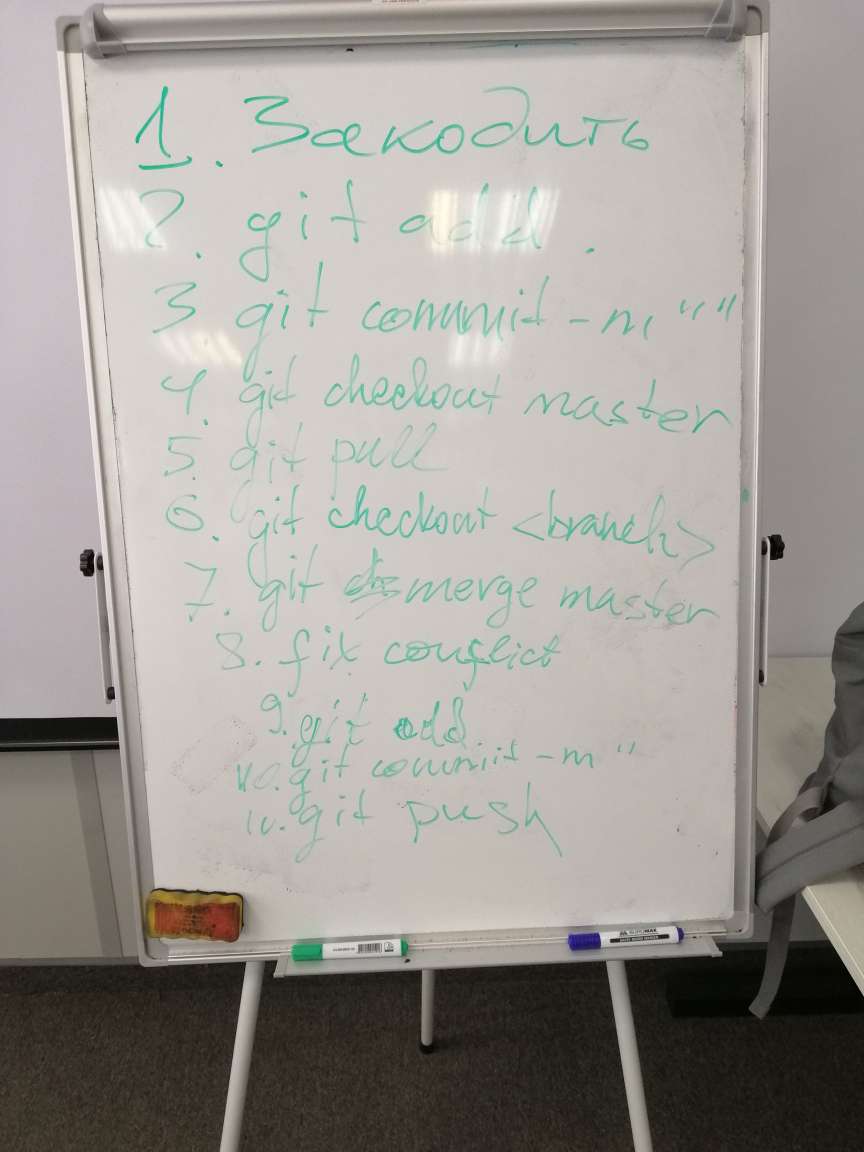 1. Закодить
2. git add .
3 git commit -m " "
4. git checkout master
5. git pull
6. git checkout <branch>
7. git merge master
8. fix conflict
9. git add
10. git commit -m "
git push